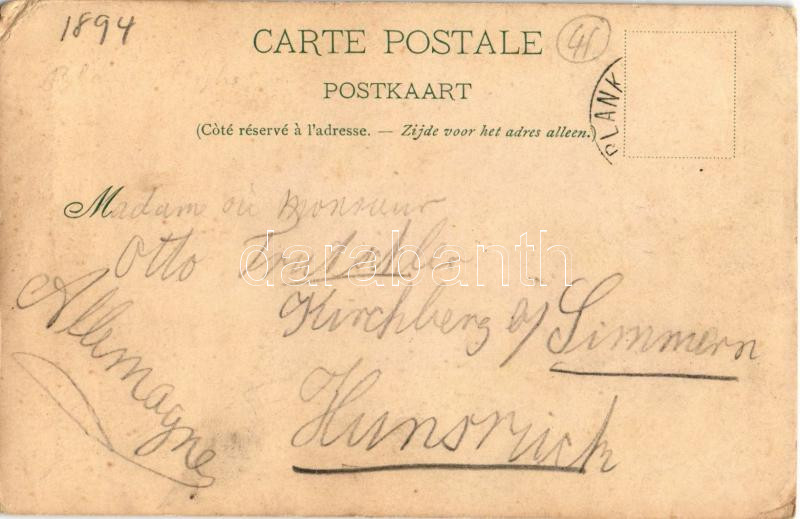 1894
CARTE POSTALE
41
POSTKAART
PLANK
(Côté réservé à l'adresse. — Zijde voor het adres alleen.)
Madame ou Monsieur
Otto
darabanth
Kirchberg a/ Simmern
Allemagne
Hunsrück